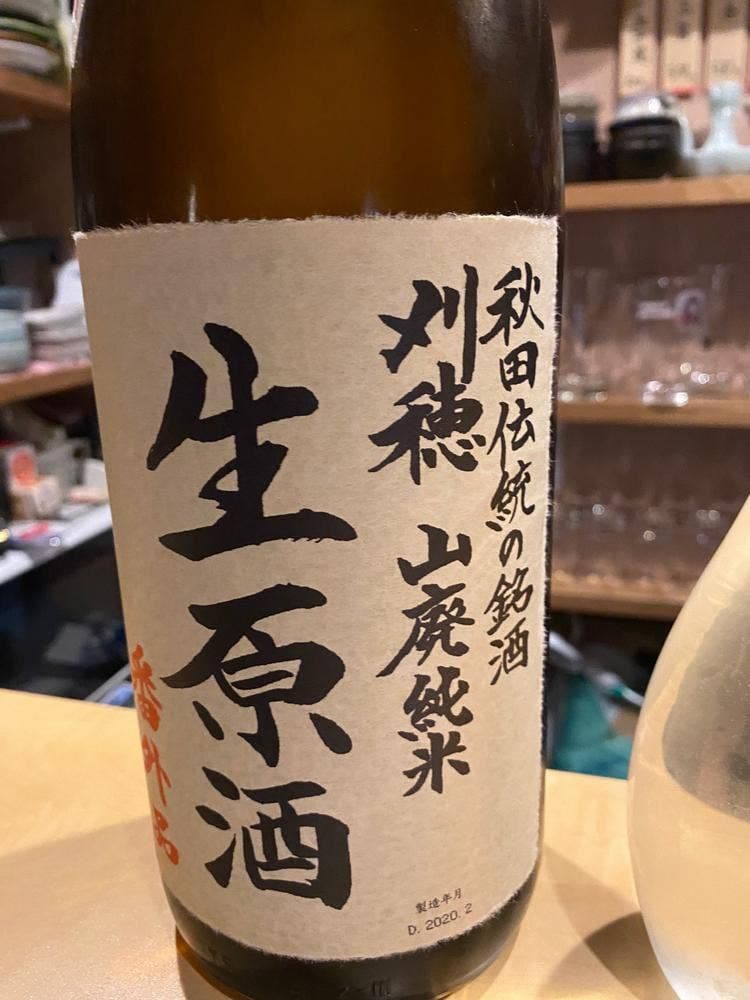 秋田伝統の銘酒
刈穂 山廃純米
生原酒
番外品
製造年月
D. 2020. 2